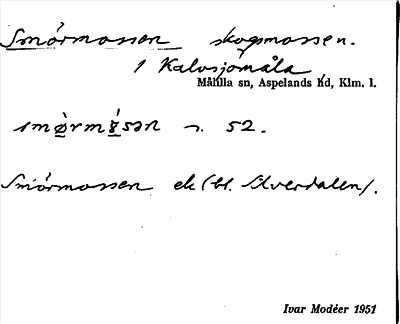 Smörmossen skogsmossen.
i Kalvsjömåla
Målilla sn, Aspelands hd, Klm. l.
smø̀rmɷ́sən n. 52.
Smörmossen ek (bl. Silverdalen).
Ivar Modéer 1951